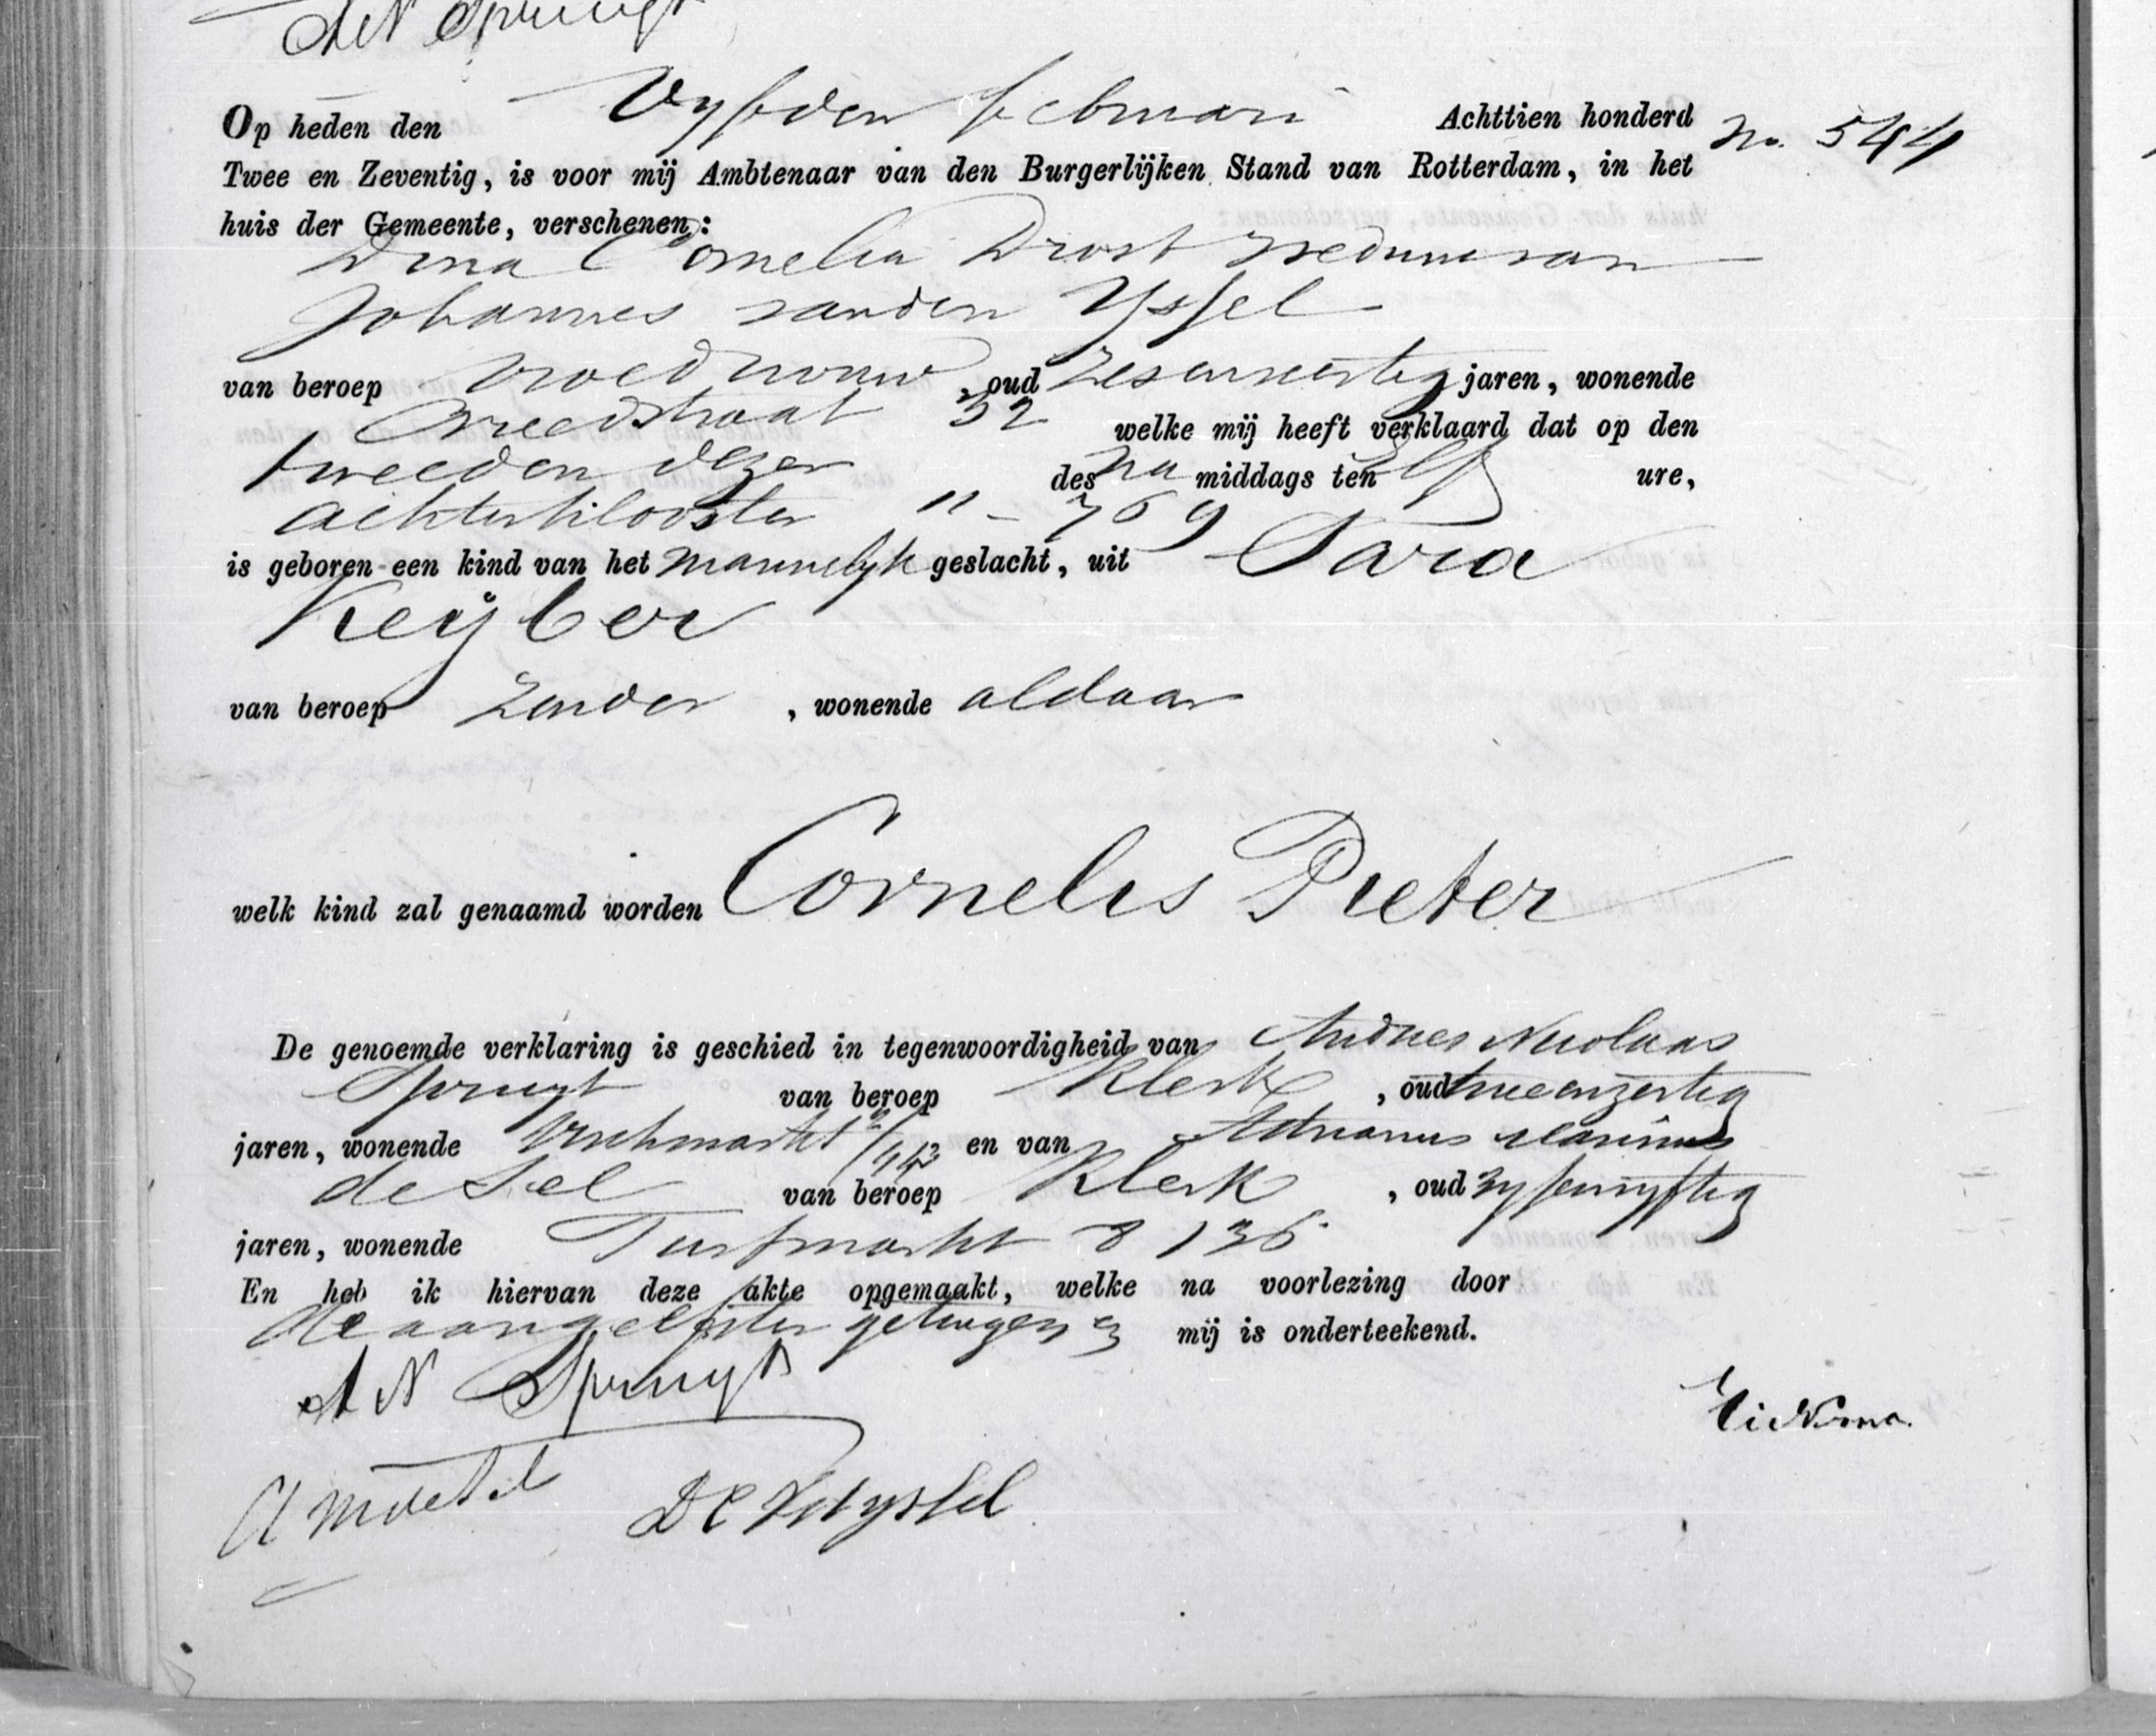 AN Spruyt
Op heden den Vyfden februari Achttien honderd No. 544
Twee en Zeventig, is voor mij Ambtenaar van den Burgerlijken Stand van Rotterdam, in het
huis der Gemeente, verschenen:
Dina Cornelia Drost weduwe van
Johannes van den Yssel
van beroep vroedvrouw, oud zesenveertig jaren, wonende
Breedstraat 32 welke mij heeft verklaard dat op den
tweeden dezer des na middags ten elf ure,
achterklooster 11-769
is geboren een kind van het mannelyk geslacht, uit Sara
Keyber
van beroep zonder, wonende aldaar
welk kind zal genaamd worden Cornelis Pieter
De genoemde verklaring is geschied in tegenwoordigheid van Andries Nicolaas
Spruyt van beroep Klerk, oud tweeenzestig
jaren, wonende Vischmarkt en van Adrianus Marinus
de Tel van beroep Klerk, oud vyfenvyftig
jaren, wonende Turfmarkt 8 136
En heb ik hiervan deze akte opgemaakt, welke na voorlezing door
de aangeefster getuigen en mij is onderteekend.
AN Spruyt